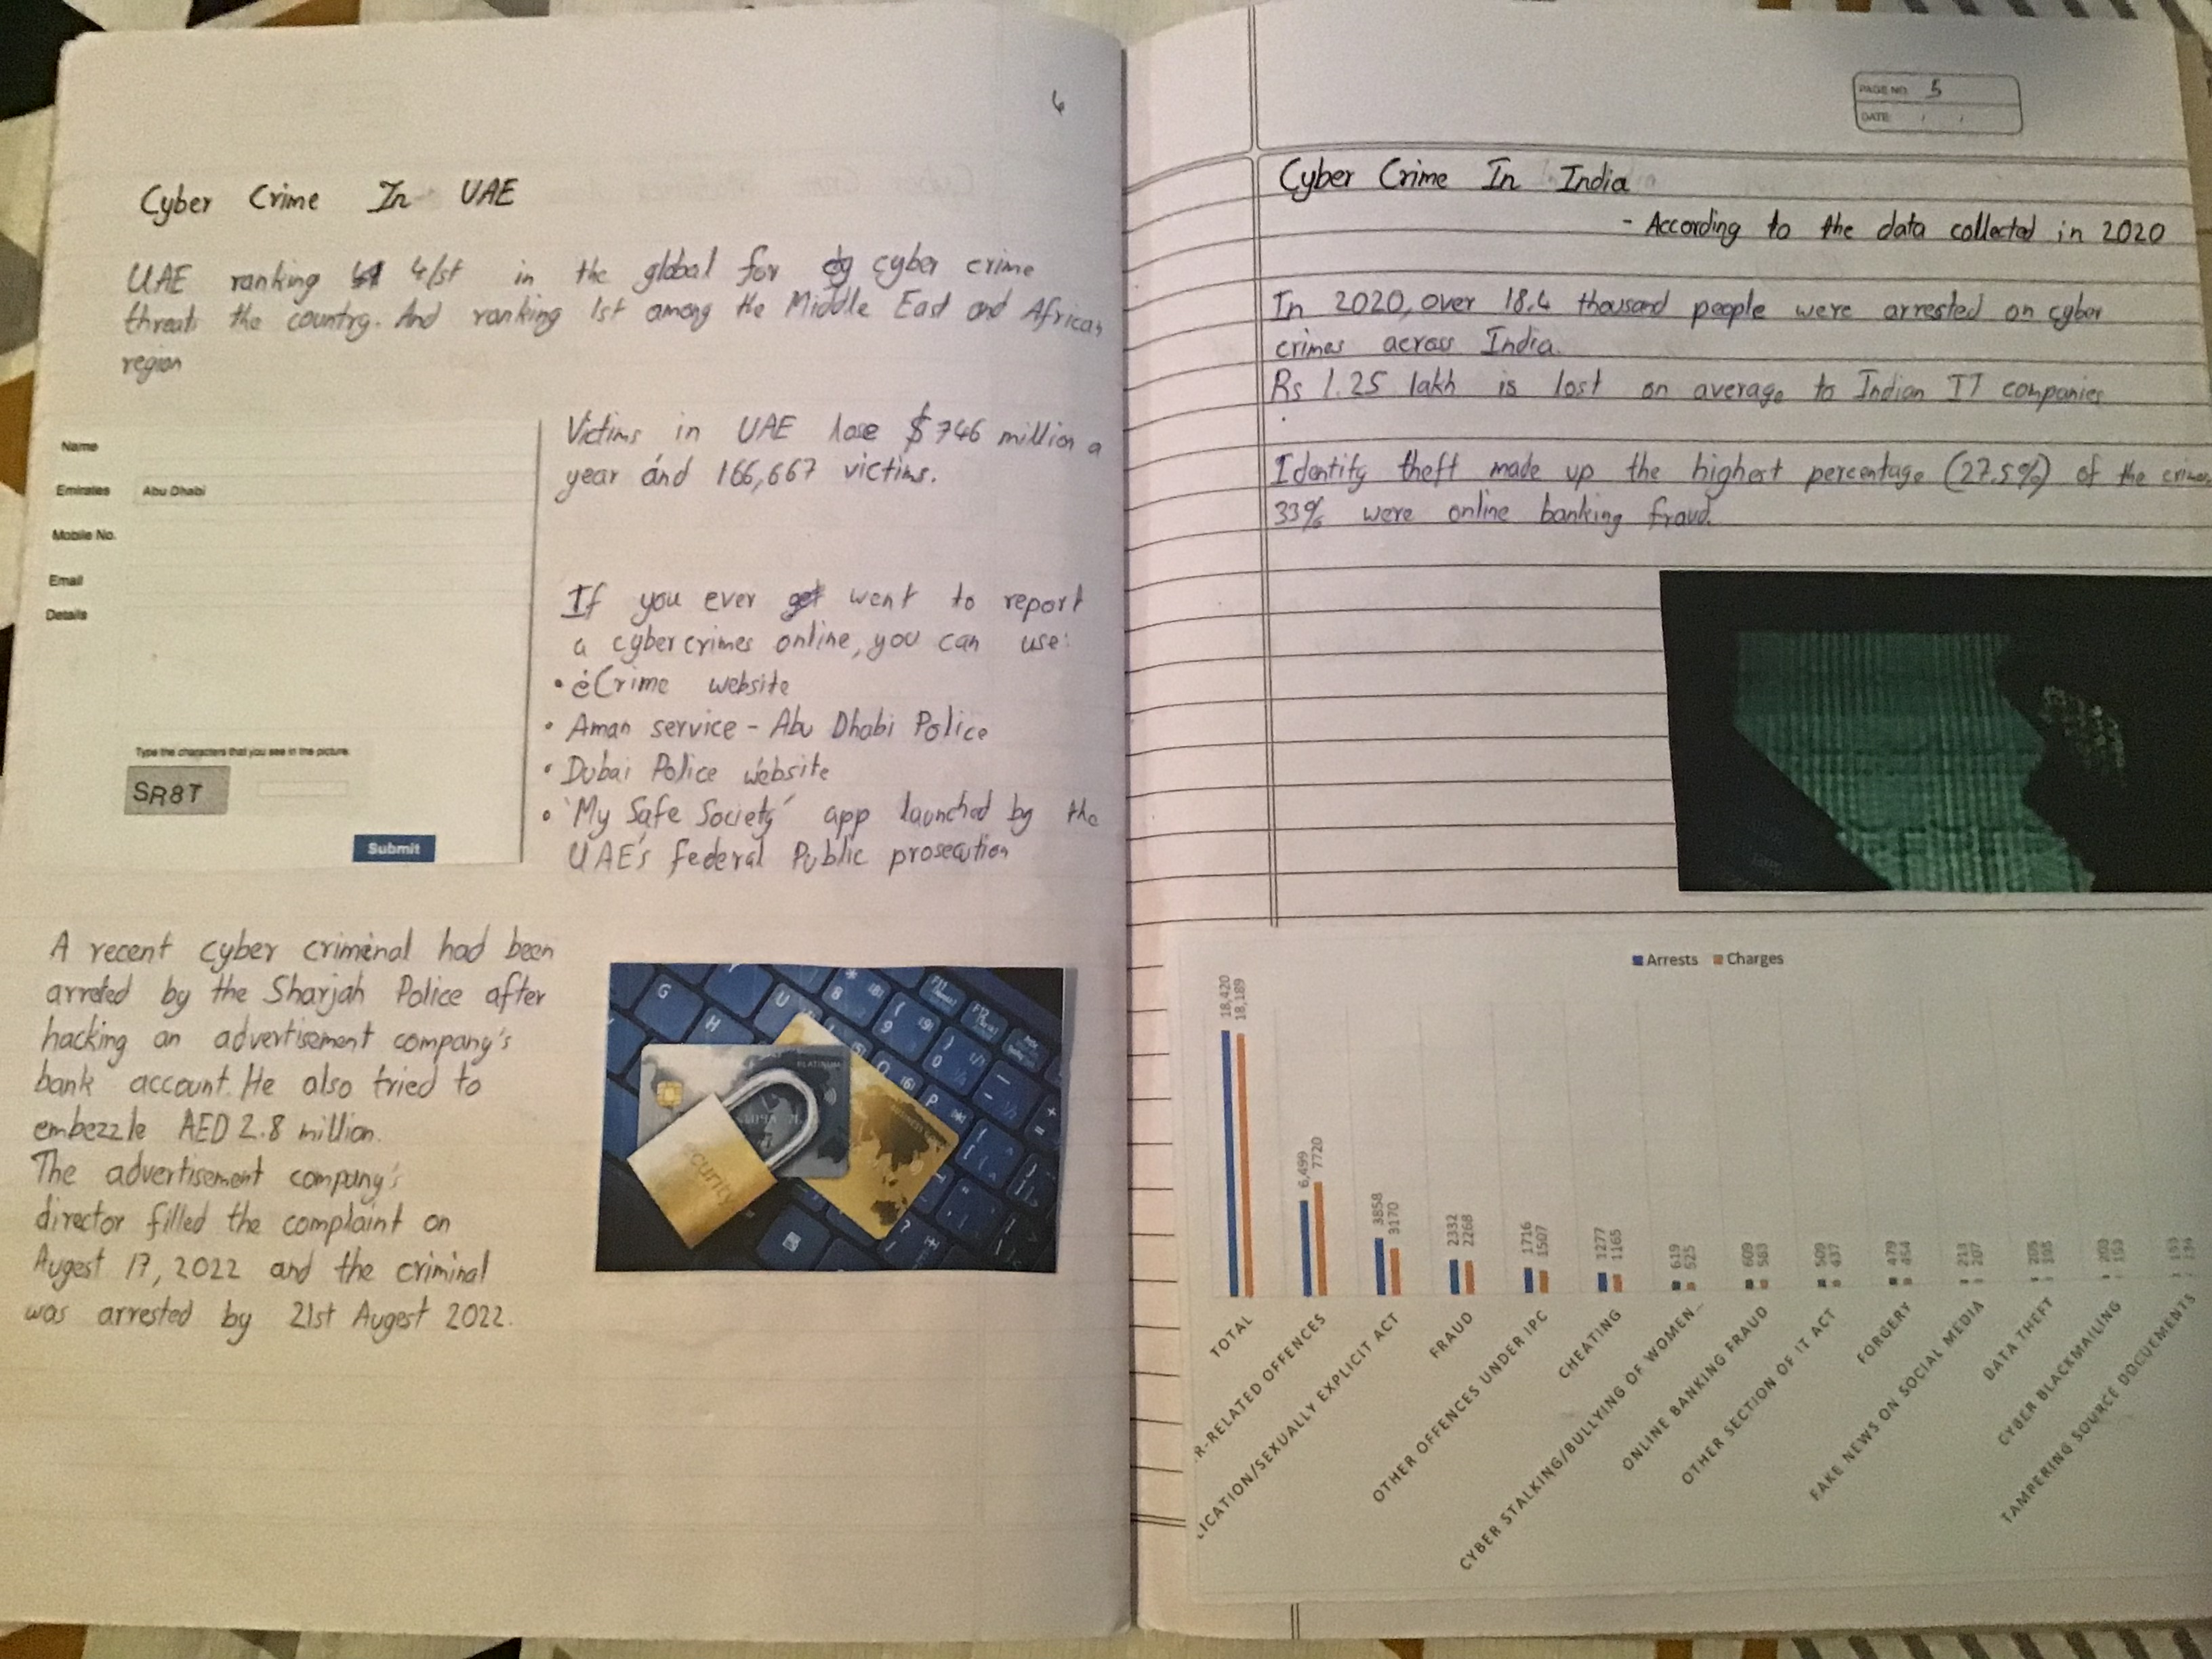 4
Cyber Crime In UAE
UAE ranking 41st in the global for cyber crime
threats the country. And ranking 1st among the Middle East and African
region
Name
Emirates Abu Dhabi
Mobile No.
Email
Details
Type the characters that you see in the picture.
SR8T
Submit
Victims in UAE lose $746 million a
year and 166,667 victims.
If you ever want to report
a cybercrimes online, you can use:
• eCrime website
• Aman service - Abu Dhabi Police
• Dubai Police website
• 'My Safe Society' app launched by the
UAE's federal Public prosecution
A recent cyber criminal had been
arrested by the Sharjah Police after
hacking an advertisement company's
bank account. He also tried to
embezzle AED 2.8 million.
The advertisement company's
director filled the complaint on
Augest 17, 2022 and the criminal
was arrested by 21st Augest 2022.
PLATINUM
curity
PAGE NO: 5
DATE: / /
Cyber Crime In India
- According to the data collected in 2020
In 2020, over 18.4 thousand people were arrested on cyber
crimes across India.
Rs 1.25 lakh is lost on average to Indian IT companies
Identity theft made up the highest percentage (27.5%) of the crimes
33% were online banking fraud.
Arrests Charges
18,420 18,189
6,499 7720
3858 3170
2332 2268
1716 1507
1277 1165
619 525
609 583
509 437
479 454
213 207
TOTAL
R-RELATED OFFENCES
LICATION/SEXUALLY EXPLICIT ACT
FRAUD
OTHER OFFENCES UNDER IPC
CHEATING
CYBER STALKING/BULLYING OF WOMEN...
ONLINE BANKING FRAUD
OTHER SECTION OF IT ACT
FORGERY
FAKE NEWS ON SOCIAL MEDIA
DATA THEFT
CYBER BLACKMAILING
TAMPERING SOURCE DOCUEMENTS